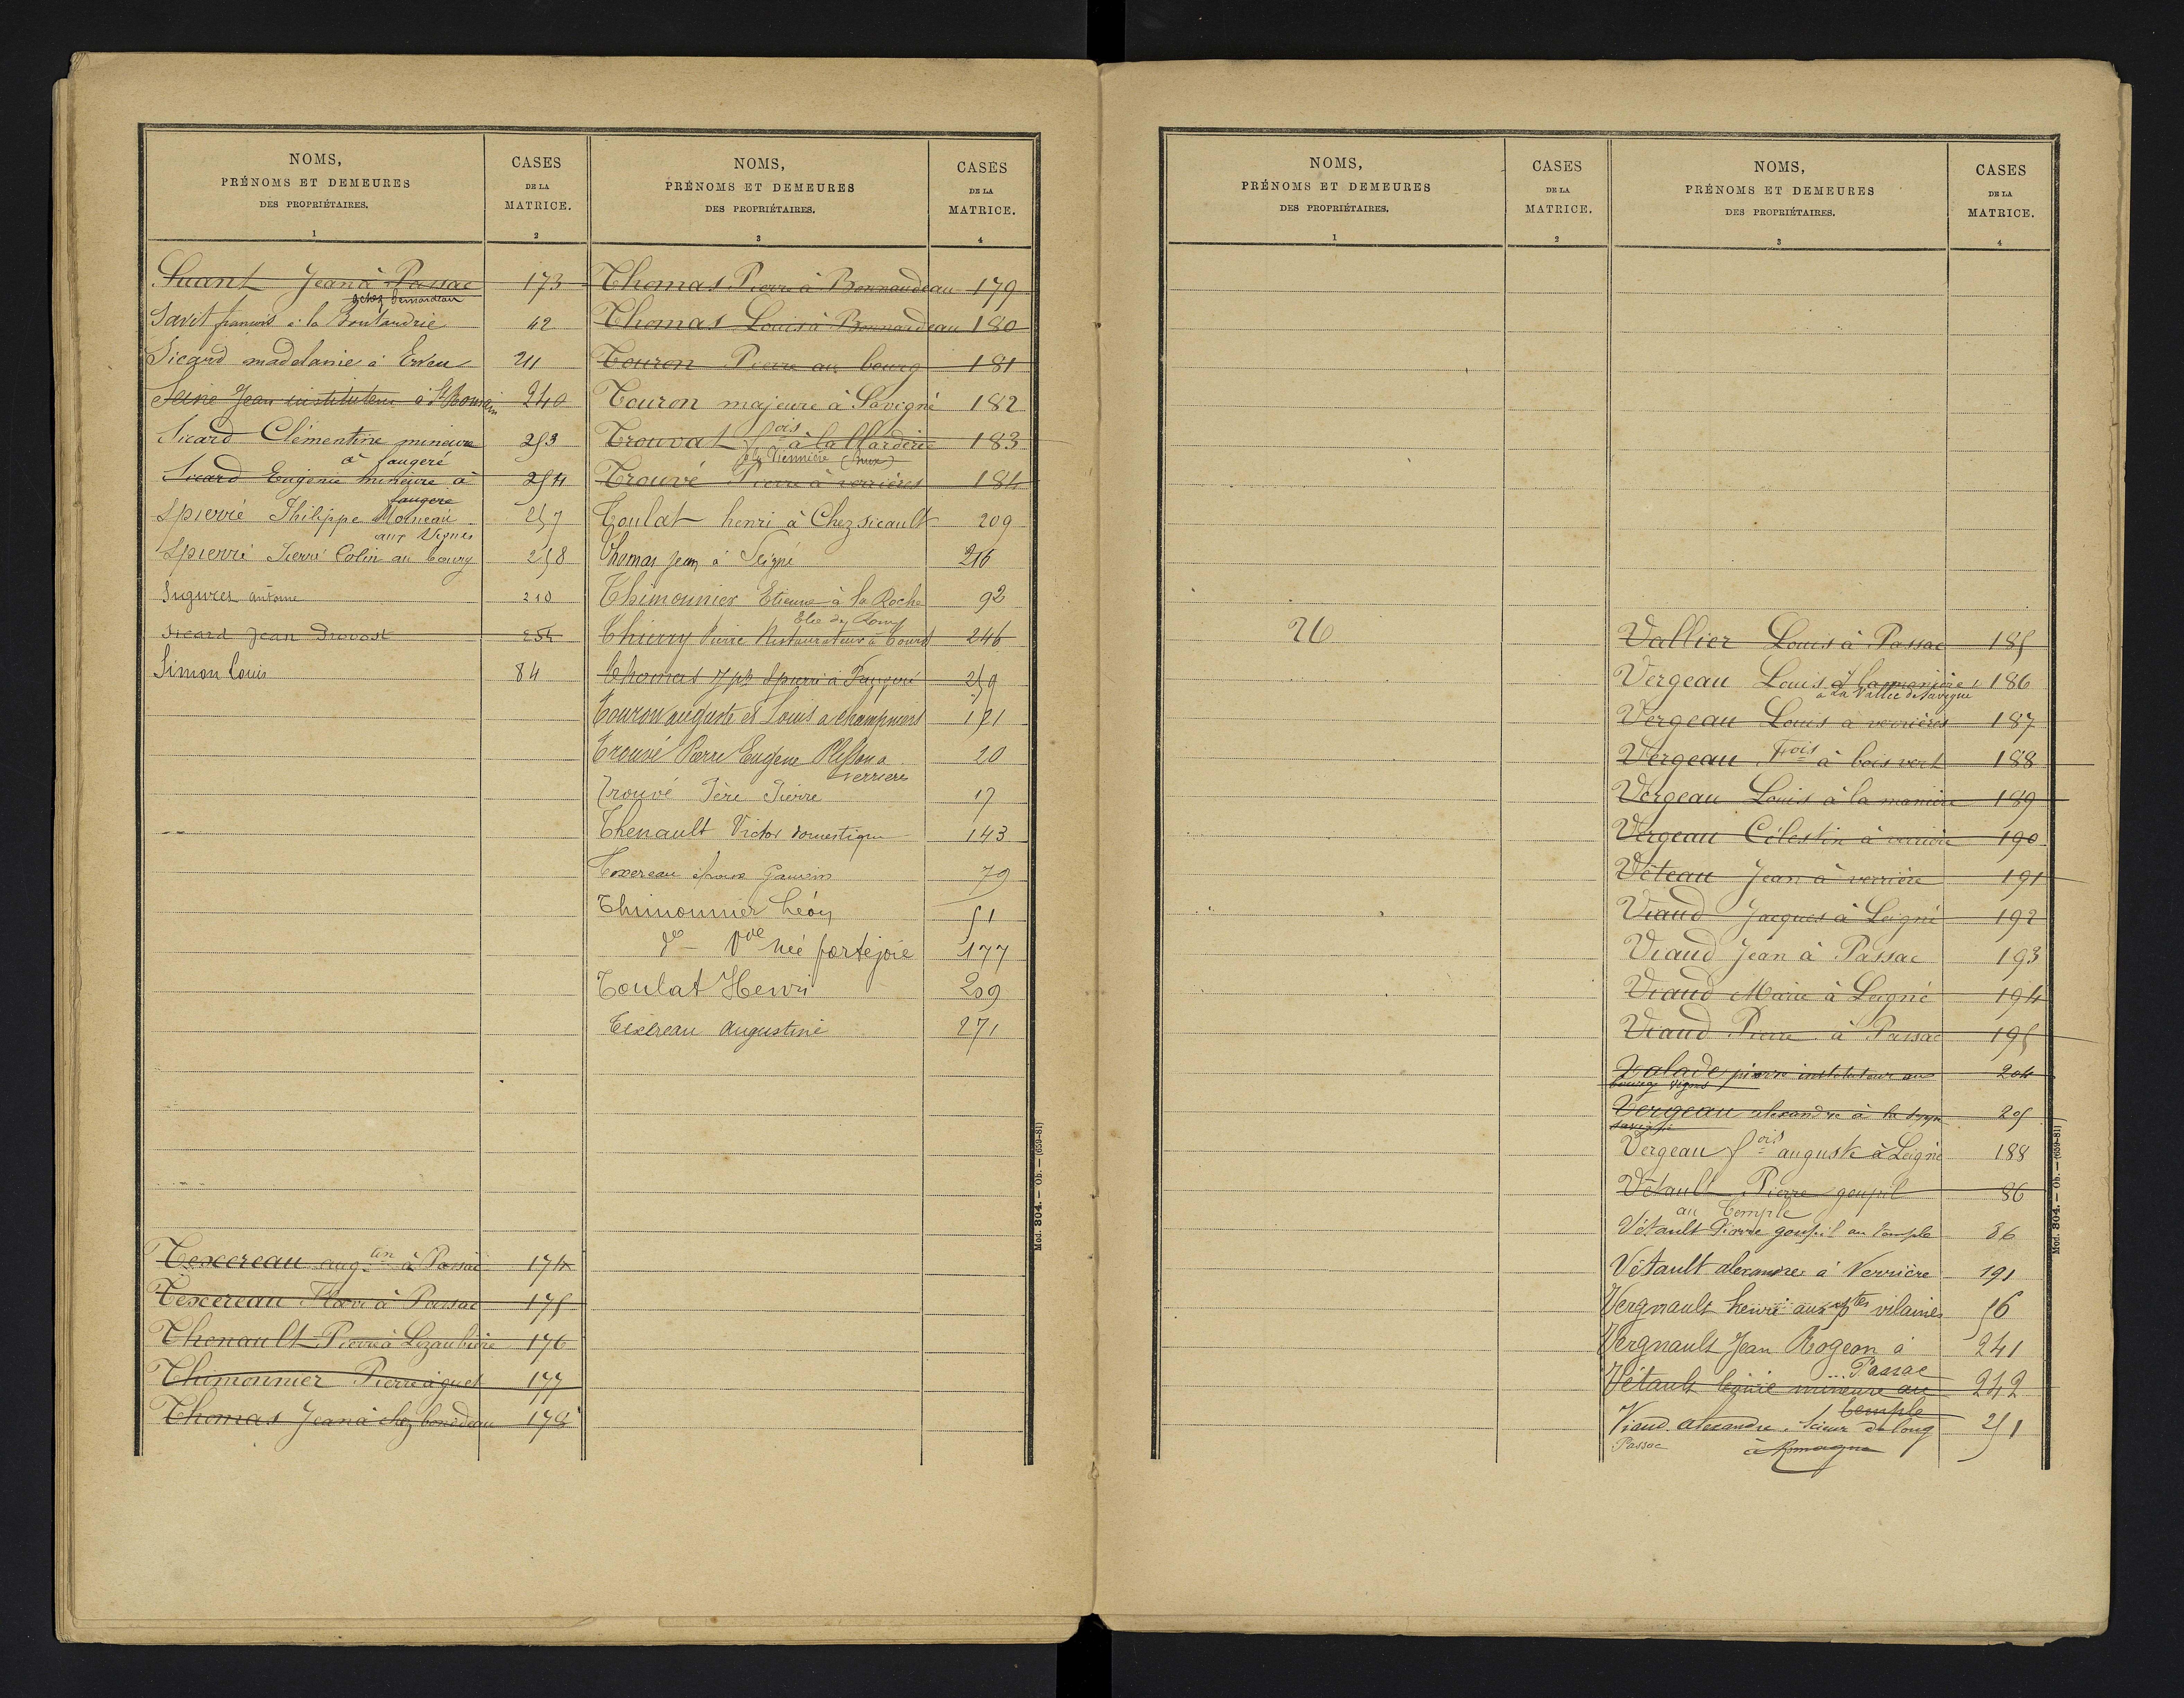 NOMS,
PRÉNOMS ET DEMEURES
DES PROPRIÉTAIRES.
1
CASES
DE LA
MATRICE.
2
Suant Jean à Passac 173
Savit francois à la Boutaudrie 42
Sicard madelanie à 211
Jean instituteur à St Romain 240
Sicard Clémentine mineure 253
à faugeré
Sicard Eugenie mineure à 254
faugere
Spierré Philippe Moineau 257
aux Vignes
Spierré Pierre Colin au bourg 258
antoine 210
Sicard Jean Provost 254
Simon Louis 84
Texcereau aug.tin à Passac 174
Texcereau à Passac 175
Thenault Pierre à 176
Thimonnier Pierre à 177
Thomas Jean à chez 178
NOMS,
PRÉNOMS ET DEMEURES
DES PROPRIÉTAIRES.
3
CASES
DE LA
MATRICE.
4
Thomas Pierre à Bonnaudeau 179
Thomas Louis à Bonnaudeau 180
Touron Pierre au bourg 181
Touron majeure à Savigné 182
Trouvat fois à la 183
Trouvé Pierre à verrières 184
Toulat henri à Chez sicault 209
Thomas jean à Leigné 216
Thimonnier Etienne à la Roche 92
Thierry Pierre Restaurateur à 246
Thomas Jph Spierré à Faugeré 259
Touron auguste et Louis a 121
Trouvé Pierre Eugene a 20
verriere
Trouvé Père Pierre 17
Thenault Victor domestique 143
Texereau épouse 79
Thimonnier Léon 51
do - Vve née portejoie 177
Toulat Henri 209
Texereau Augustine 271
Mod. 804. — Ob. — (659-81)
NOMS,
PRÉNOMS ET DEMEURES
DES PROPRIÉTAIRES.
1
CASES
DE LA
MATRICE.
2
26
NOMS,
PRÉNOMS ET DEMEURES
DES PROPRIÉTAIRES.
3
CASES
DE LA
MATRICE.
4
Vallier Louis à Passac 185
Vergeau Louis 186
a La Vallée de Savigné
Vergeau Louis a verrières 187
Vergeau Fois à bois vert 188
Vergeau Louis à la 189
Vergeau Célestin à 190
Véteau Jean à verrière 191
Viaud Jacques à Leigné 192
Viaud Jean à Passac 193
Viaud Marie à Leigné 194
Viaud Pierre à Passac 195
Valade pierre instituteur au 204
bourg
Vergeau alexandre à la 25
Vergeau fois auguste à Leigné 188
Vétault Pierre goupil 86
au Temple
Vétault Pierre goupil au Temple 86
Vétault alexandre à Verrière 191
Vergnault henri aux ptes vilaines 56
Vergnault Jean Rogeon à 241
Passac
Vétault mineure au 242
temple
Viaud alexandre. Scieur de long 251
Passac à Romagne
Mod. 804. — Ob. — (659-81)